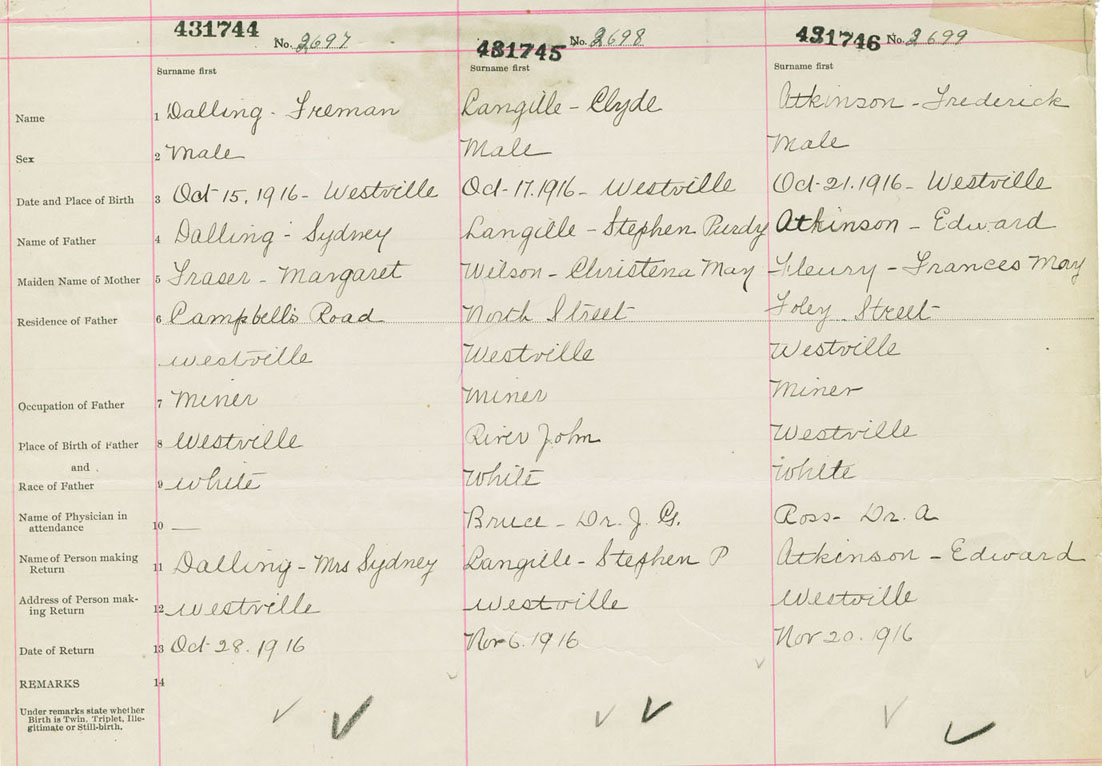 431744 No. 2697 431745 No. 2698 431746 No. 2699
Surname first Surname first Surname first
Name 1 Dalling - Freman Langille - Clyde Atkinson - Frederick
Sex 2 Male Male Male
Date and Place of Birth 3 Oct 15, 1916 - Westville Oct - 17. 1916 - Westville Oct - 21. 1916 - Westville
Name of Father 4 Dalling - Sydney Langille - Stephen Purdy Atkinson - Edward
Maiden Name of Mother 5 Fraser - Margaret Wilson - Christena May Fleury - Frances May
Residence of Father 6 Campbell's Road North Street Foley Street
Westville Westville Westville
Occupation of Father 7 Miner Miner Miner
Place of Birth of Father 8 Westville River John Westville
and
Race of Father 9 White White White
Name of Physician in
attendance 10 — Bruce - Dr. J. G. Ross - Dr. A
Name of Person making
Return 11 Dalling - Mrs Sydney Langille - Stephen P Atkinson - Edward
Address of Person mak-
ing Return 12 Westville Westville Westville
Date of Return 13 Oct 28. 1916 Nov 6. 1916 Nov 20. 1916
REMARKS 14
Under remarks state whether
Birth is Twin, Triplet, Ille-
gitimate or Still-birth.